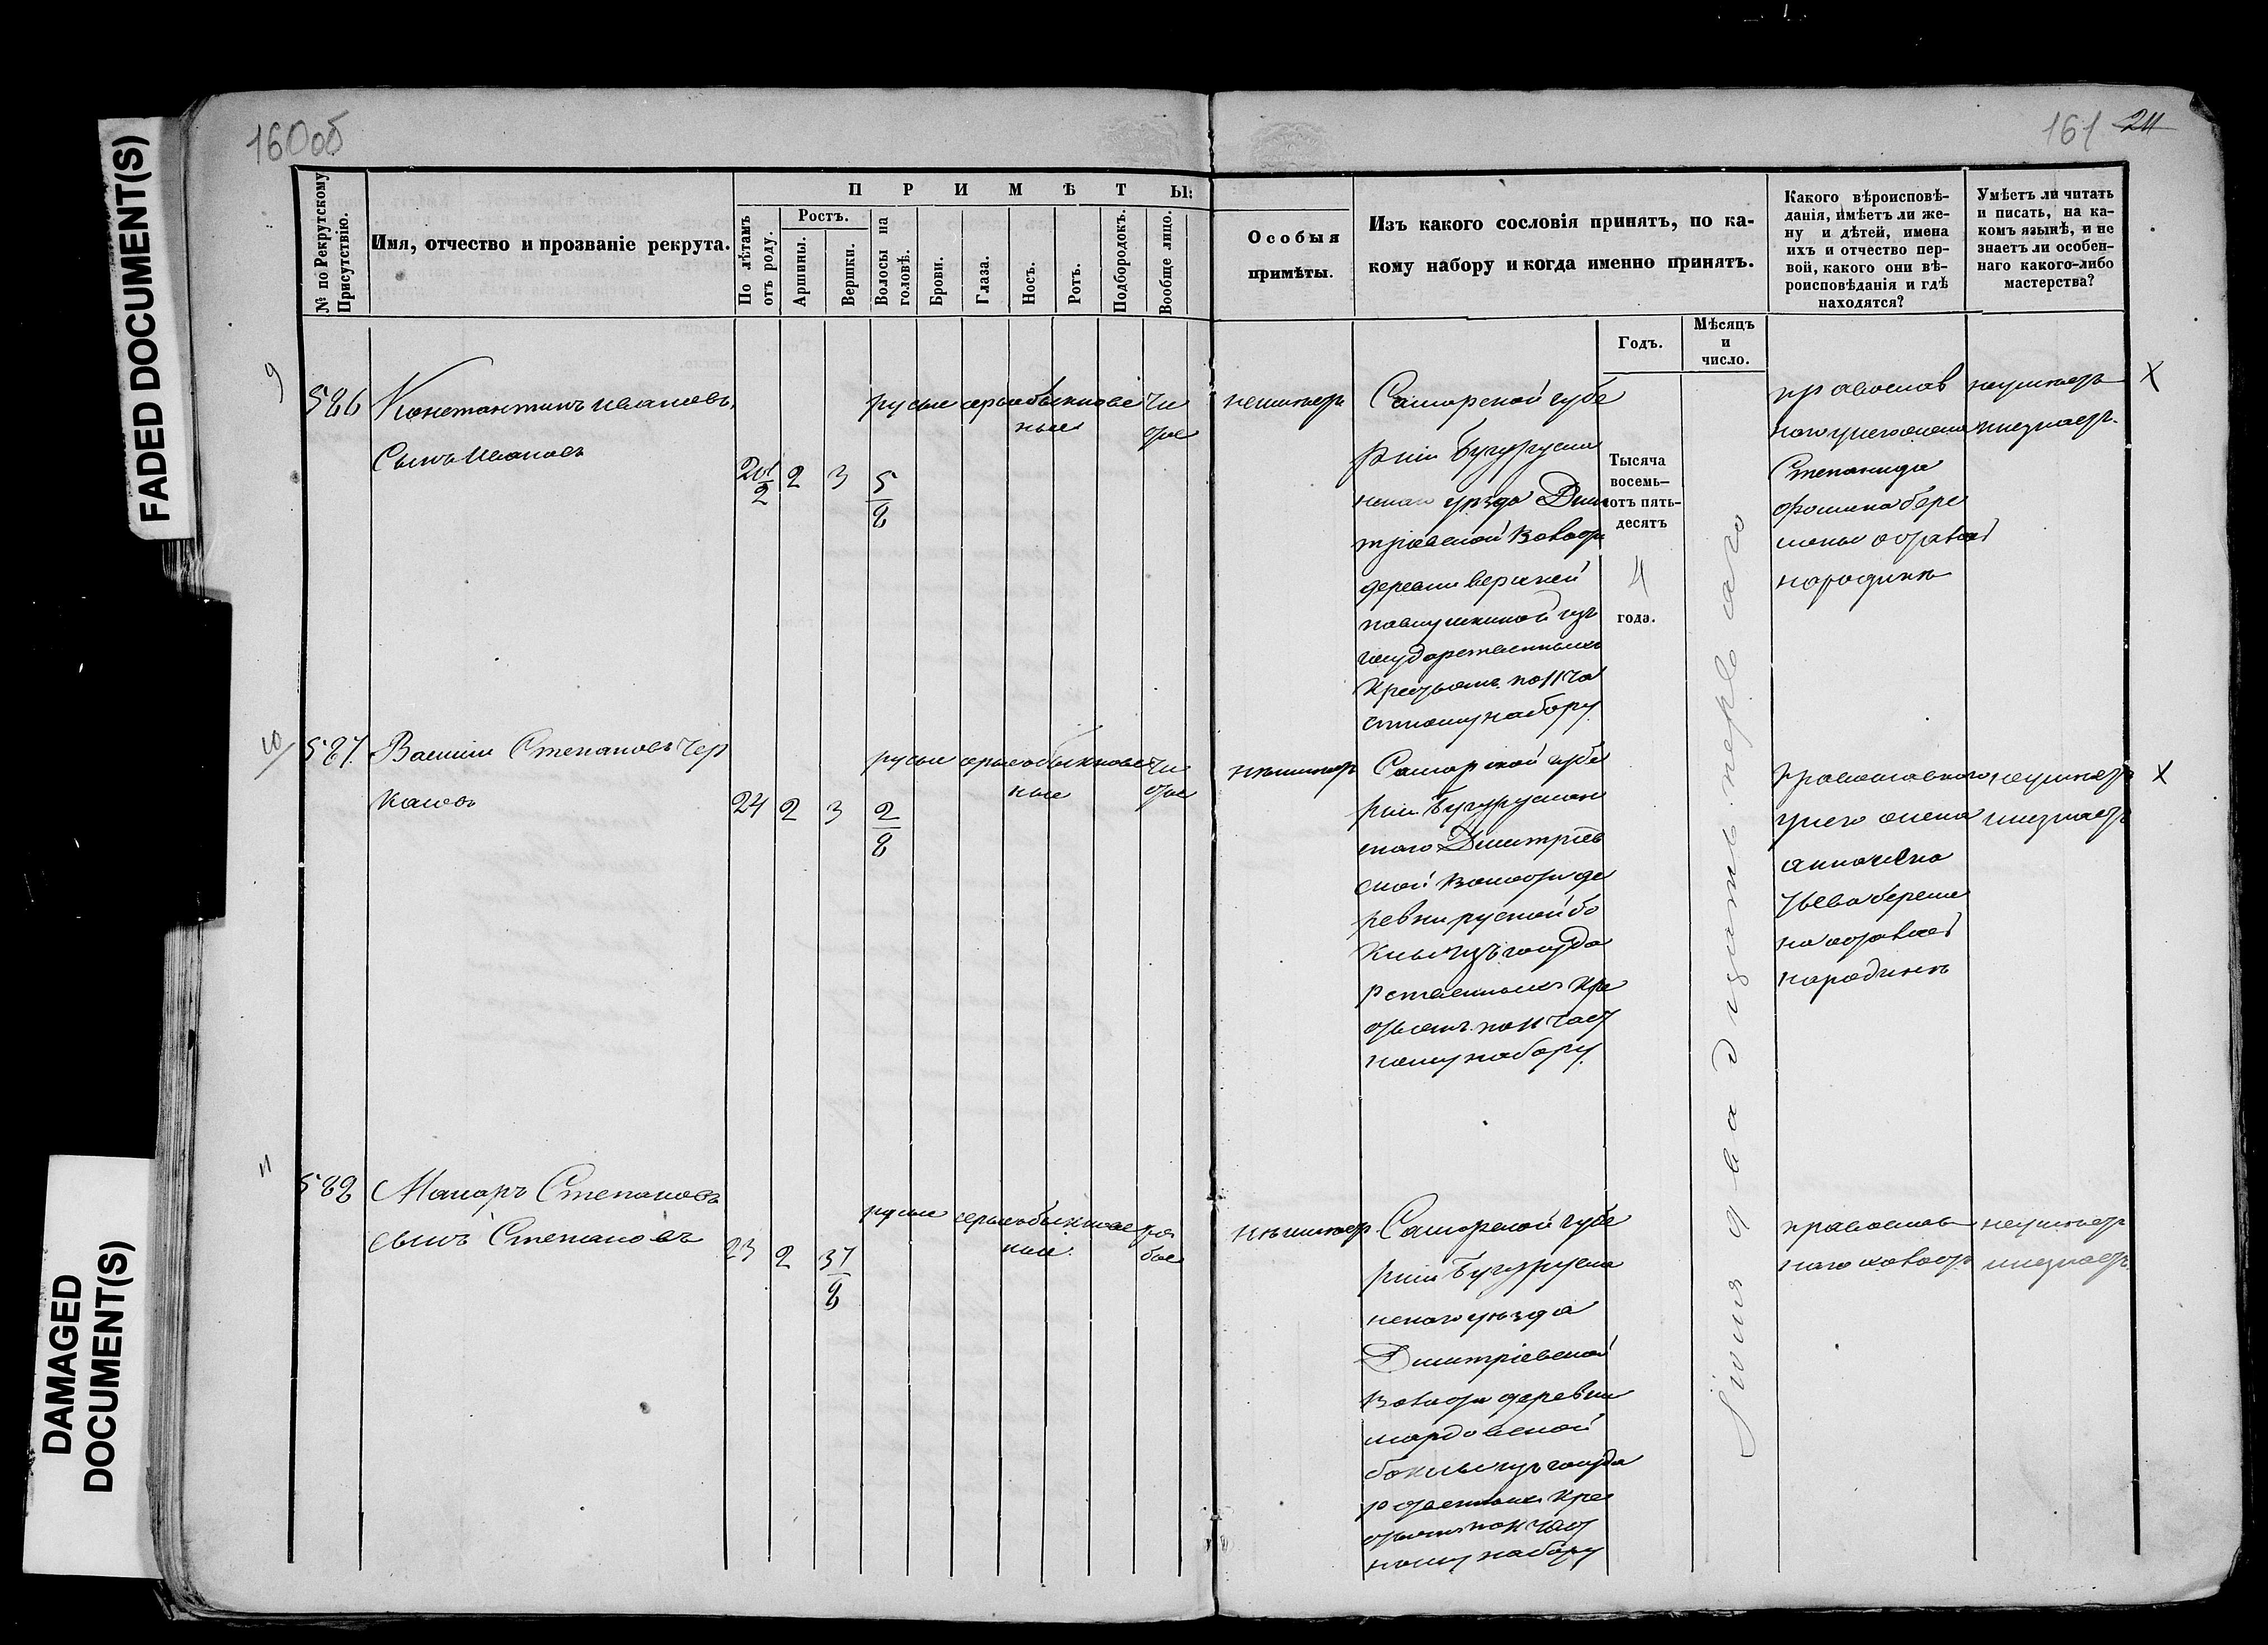 FADED DOCUMENT(S)
DAMAGED
DOCUMENT(S)
160об
161 211
№ по Рекрутскому
Присутствію.
Имя, отчество и прозваніе рекрута.
П Р И М Ѣ Т Ы:
По лѣтамъ
отъ роду.
Ростъ.
Аршины.
Вершки.
Волосы на
головѣ.
Брови.
Глаза.
Носъ.
Ротъ.
Подбородокъ.
Вообще лицо.
Особыя
примѣты.
Изъ какого сословія принятъ, по ка-
кому набору и когда именно принятъ.
Годъ.
Мѣсяцъ
и
число.
Какого вѣроисповѣ-
данія, имѣетъ ли же-
ну и дѣтей, имена
ихъ и отчество пер-
вой, какого они вѣ-
роисповѣданія и гдѣ
находятся?
Умѣетъ ли читать
и писать, на ка-
комъ языкѣ, и не
знаетъ ли особен-
наго какого-либо
мастерства?
Тысяча
восемь-
отъ пять-
десятъ
4
года.
Іюня двадцать перваго
9
586
Константинъ Ивановъ
Сынъ Ивановъ
2
3
5/8
русые серые обыкнове
ные
чи
стое
неимеетъ
Самарской губе
рніи Бугурусла
нскаго уезда Дми
тріевской Волости
деревни верхней
павлушкиной изъ
государственныхъ
Крестьянъ по 11 ча
стному набору
православ
наго у него жена
Степанида
Фомина бере
менна оставлена
народинѣ
неумѣетъ
инезнаетъ
X
10
587.
Василий Степановъ Чер
касовъ
24
2
3
2/8
русые серые обыкнове
ные
чи
стое
неимеетъ
Самарской губе
рніи Бугуруслан
скаго Дмитріев
ской Волости де
ревни руской бо
клы изъ госуда
рственныхъ Кре
стьянъ по 11 част
ному набору
православнаго
у него жена
береме
на оставлена
народинѣ
неумѣетъ
инезнаетъ
X
11
588
Макаръ Степановъ
сынъ Степановъ
23
2
3 7/8
русые серые обыкнове
ные
ря
бое
неимеетъ
Самарской губе
рніи Бугурусла
нскаго уезда
Дмитріевской
Волости деревни
мордовской
боклы изъ госуда
рственныхъ Кре
стьянъ по 11 част
ному набору
православ
наго холостъ
неумѣетъ
инезнаетъ